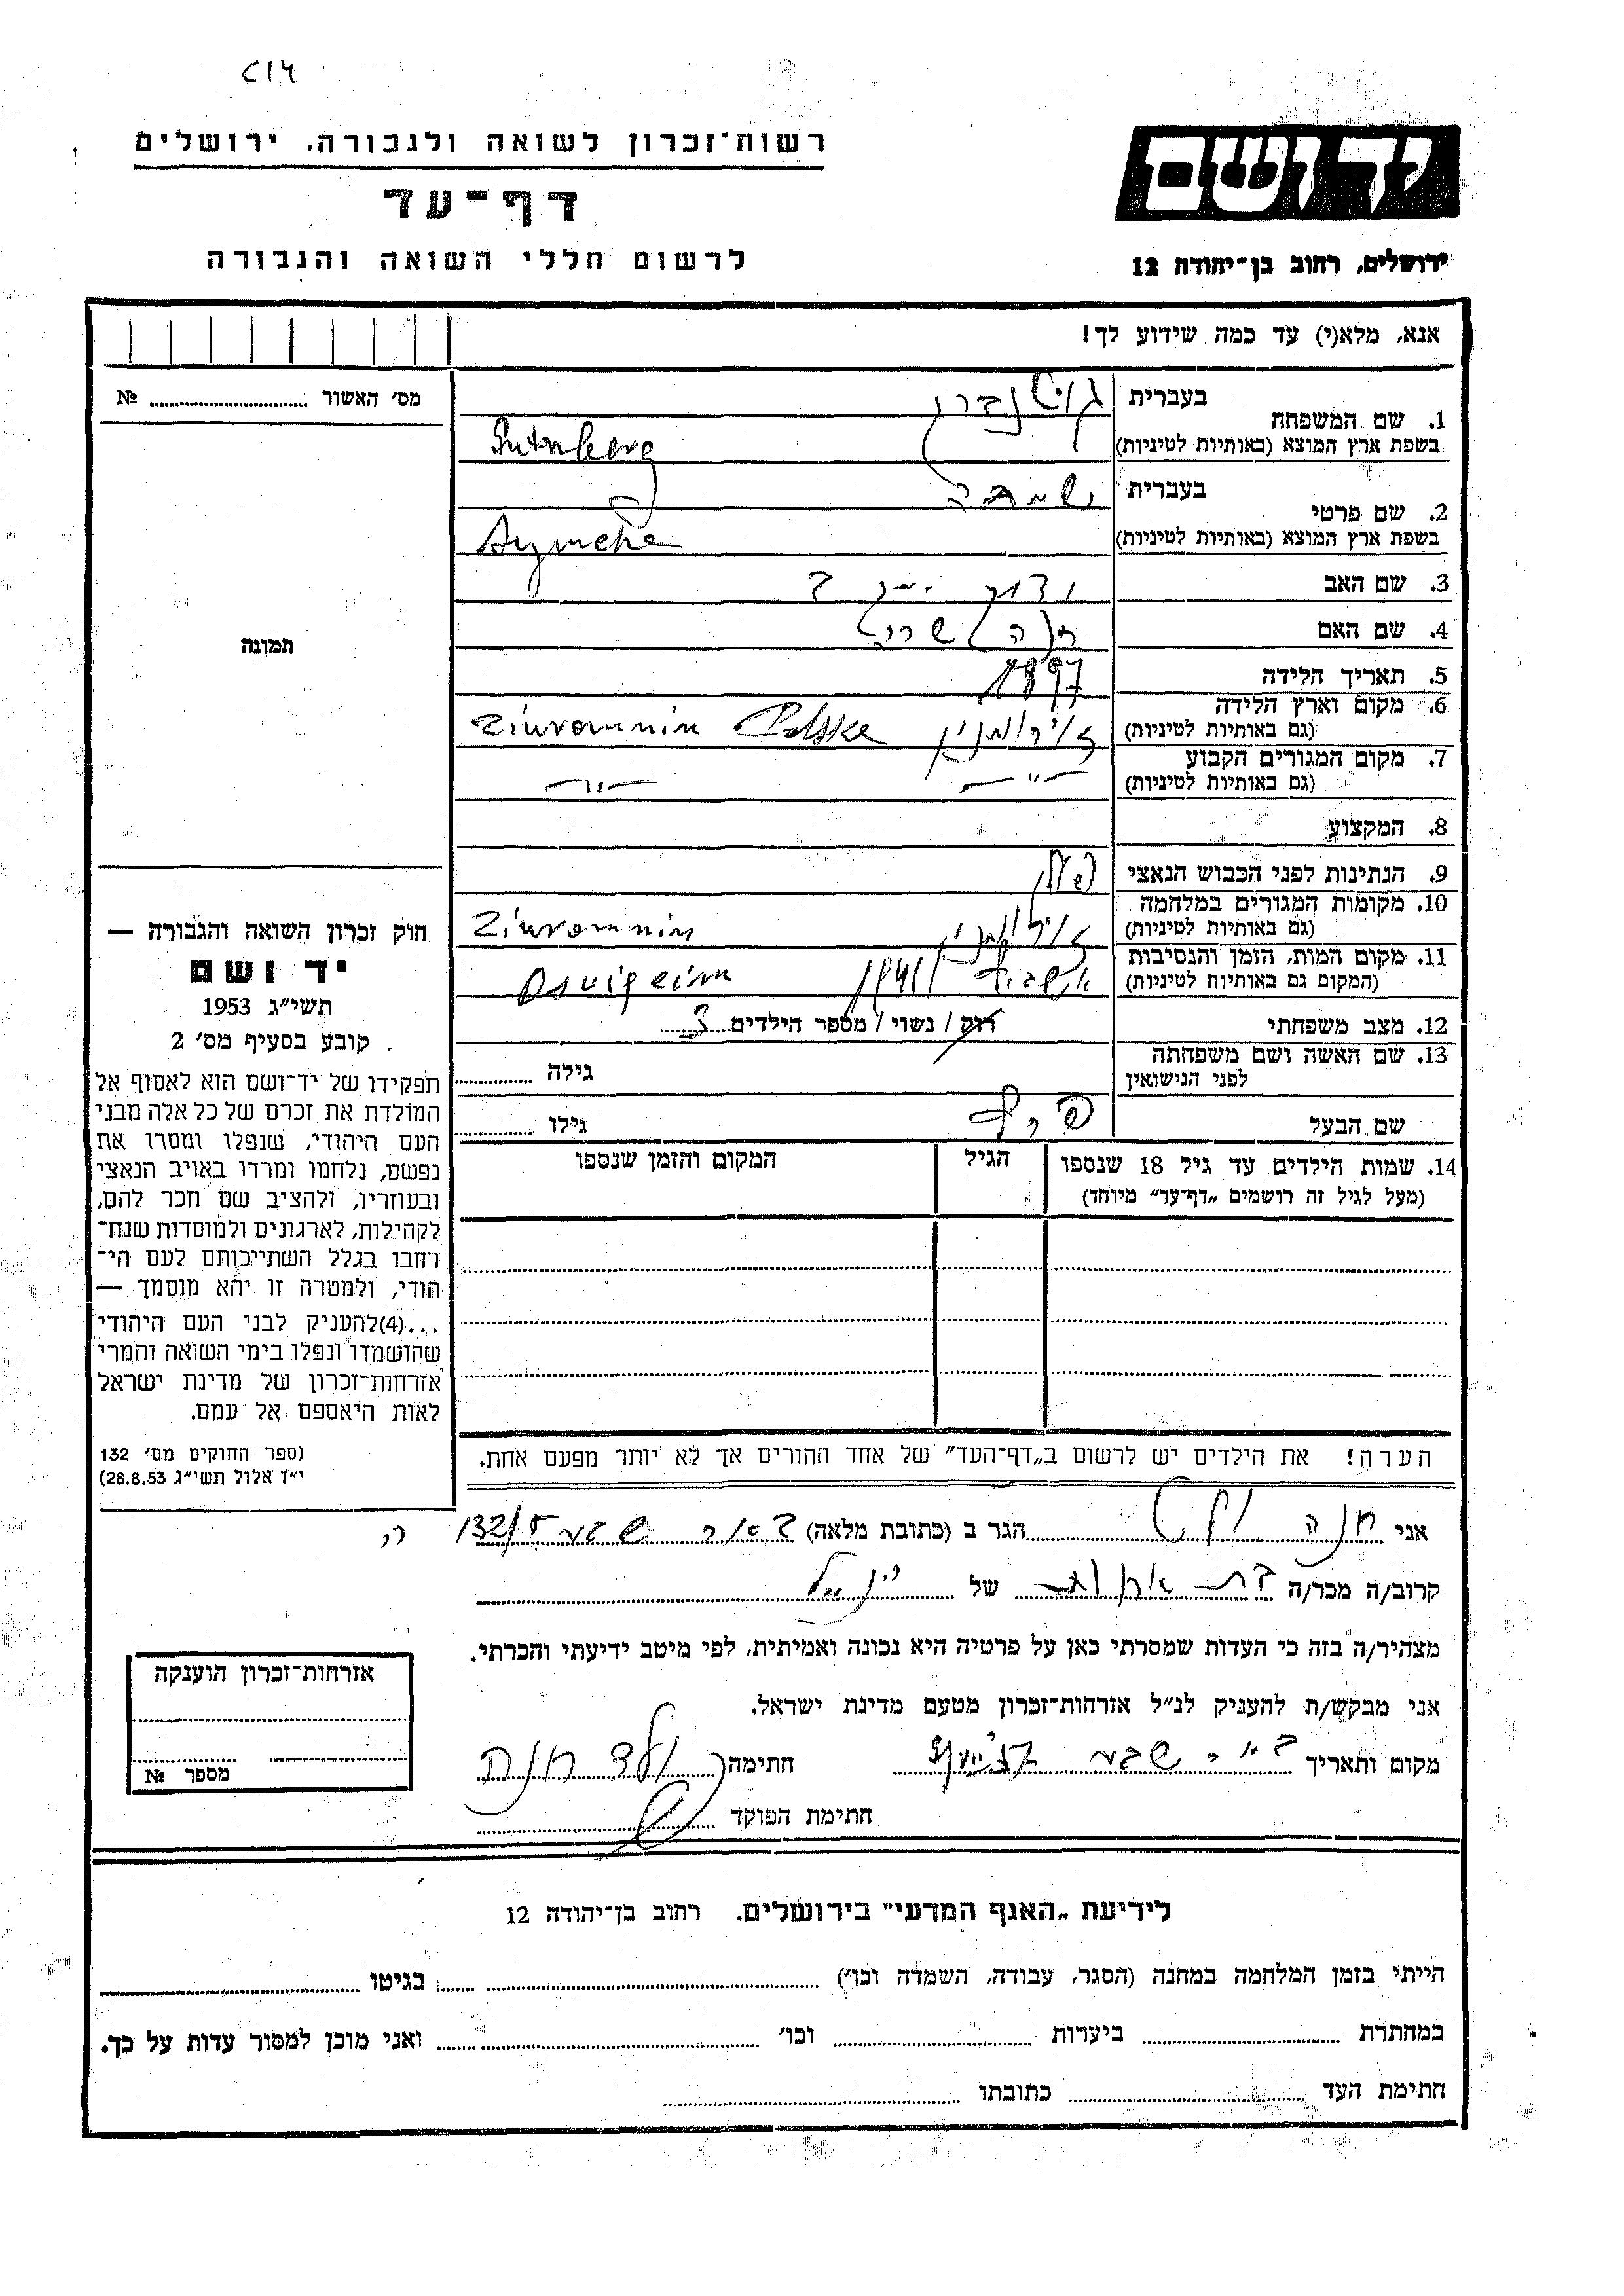 רשות־זכרון לשואה ולגבורה, ירושלים
דף־עד
לרשום חללי השואה והגבורה
ידושם
ירושלים, רחוב בן־יהודה 12
אנא, מלא(י) עד כמה שידוע לך!
מס׳ האשור № ........
תמונה
1. שם המשפחה
בעברית
בשפת ארץ המוצא (באותיות לטיניות)
2. שם פרטי
בעברית
בשפת ארץ המוצא (באותיות לטיניות)
3. שם האב
4. שם האם
5. תאריך הלידה 1897
6. מקום וארץ הלידה
(גם באותיות לטיניות) Ziuromnin Polske
7. מקום המגורים הקבוע
(גם באותיות לטיניות)
8. המקצוע
9. הנתינות לפני הכבוש הנאצי
10. מקומות המגורים במלחמה
(גם באותיות לטיניות) Ziuromnin
11. מקום המות, הזמן והנסיבות
(המקום גם באותיות לטיניות) 1941
12. מצב משפחתי רוק / נשוי / מספר הילדים 3
13. שם האשה ושם משפחתה
לפני הנישואין גילה
שם הבעל גילו
14. שמות הילדים עד גיל 18 שנספו
(מעל לגיל זה רושמים „דף־עד״ מיוחד)
הגיל
המקום והזמן שנספו
הערה! את הילדים יש לרשום ב„דף־העד״ של אחד ההורים אך לא יותר מפעם אחת.
חוק זכרון השואה והגבורה —
יד ושם
תשי״ג 1953
קובע בסעיף מס׳ 2
תפקידו של יד־ושם הוא לאסוף אל
המולדת את זכרם של כל אלה מבני
העם היהודי, שנפלו ומסרו את
נפשם, נלחמו ומרדו באויב הנאצי
ובעוזריו, ולהציב שם וזכר להם,
לקהילות, לארגונים ולמוסדות שנח־
רחבו בגלל השתייכותם לעם הי־
הודי, ולמטרה זו יהא מוסמך —
...(4)להעניק לבני העם היהודי
שהושמדו ונפלו בימי השואה והמרי
אזרחות־זכרון של מדינת ישראל
לאות היאספם אל עמם.
(ספר החוקים מס׳ 132
י״ז אלול תשי״ג 28.8.53)
אני חנה ולד הגר ב (כתובת מלאה) באר שבע
קרוב/ה מכר/ה של
מצהיר/ה בזה כי העדות שמסרתי כאן על פרטיה היא נכונה ואמיתית, לפי מיטב ידיעתי והכרתי.
אני מבקש/ת להעניק לנ״ל אזרחות־זכרון מטעם מדינת ישראל.
מקום ותאריך באר שבע חתימה ולד חנה
חתימת הפוקד
אזרחות־זכרון הוענקה
מספר №
לידיעת „האגף המדעי״ בירושלים. רחוב בן־יהודה 12
הייתי בזמן המלחמה במחנה (הסגר, עבודה, השמדה וכו׳) ........ בגיטו ........
במחתרת ........ ביערות ........ וכו׳ ........ ואני מוכן למסור עדות על כך.
חתימת העד ........ כתובתו ........